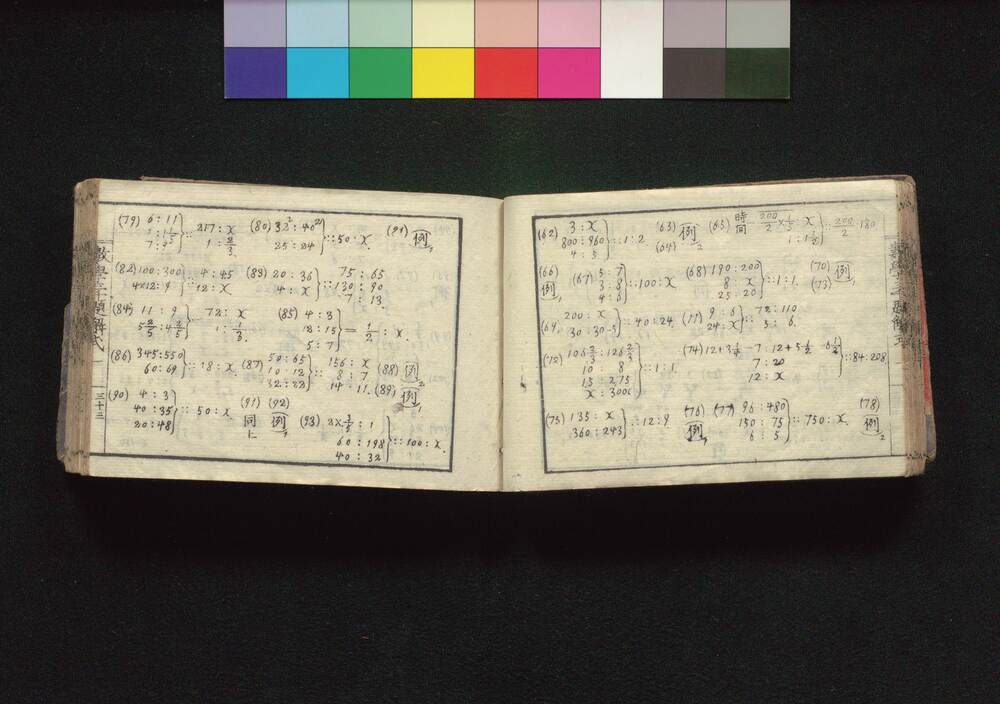 (62) 3 : x
800 : 960
4 : 5 } :: 1 : 2
(63)
(64) 例2
(65) 時間 200/2 × 1/5 : x
1 : 1 1/5 } :: 200/2 : 180
(66) 例1
(67) 5 : 7
3 : 8
4 : 6 } :: 100 : x
(68) 190 : 200
8 : x
25 : 20 } :: 1 : 1.
(70)
(73) 例1
(69) 200 : x
30 : 30-5 } :: 40 : 24
(71) 9 : 6
24 : x } :: 72 : 110
5 : 6.
(72) 106 2/3 : 126 2/3
10 : 8
15 : 275
x : 3000 } :: 1 : 1.
(74) 12+3 1/4 - 7 : 12+5 1/2 - 6 1/2
7 : 20
12 : x } :: 84 : 208
(75) 135 : x
360 : 243 } :: 12 : 9
(76) 例1
(77) 96 : 480
150 : 75
6 : 5 } :: 750 : x
(78) 例2
(79) 6 : 11
7 : 9 } :: 217 : x
1 : 2/3.
(80) 32² : 40²
25 : 24 } :: 50 : x.
(81) 例1
(82) 100 : 300
4×12 : 9 } :: 4 : 45
12 : x
(83) 20 : 36
4 : x } :: 75 : 65
130 : 90
7 : 13.
(84) 11 : 9
5 2/5 : 4 2/5 } :: 72 : x
1 : 1/3.
(85) 4 : 3
18 : 15
5 : 7 } = 1/2 : x.
(86) 345 : 550
60 : 69 } :: 18 : x
(87) 50 : 65
10 : 12
32 : 28 } :: 156 : x
8 : 7
14 : 11.
(88) 例2
(89) 例1
(90) 4 : 3
40 : 35
20 : 48 } :: 50 : x
(91) 同上
(92) 例1
(93) 2× 3/5 : 1
60 : 198
40 : 32 } :: 100 : x.
三十三